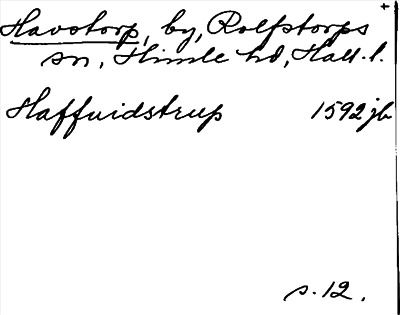 Havstorp, by, Rolfstorps
sn, Himle hd, Hall. l.
Haffuidstrup 1592 jb
s. 12.